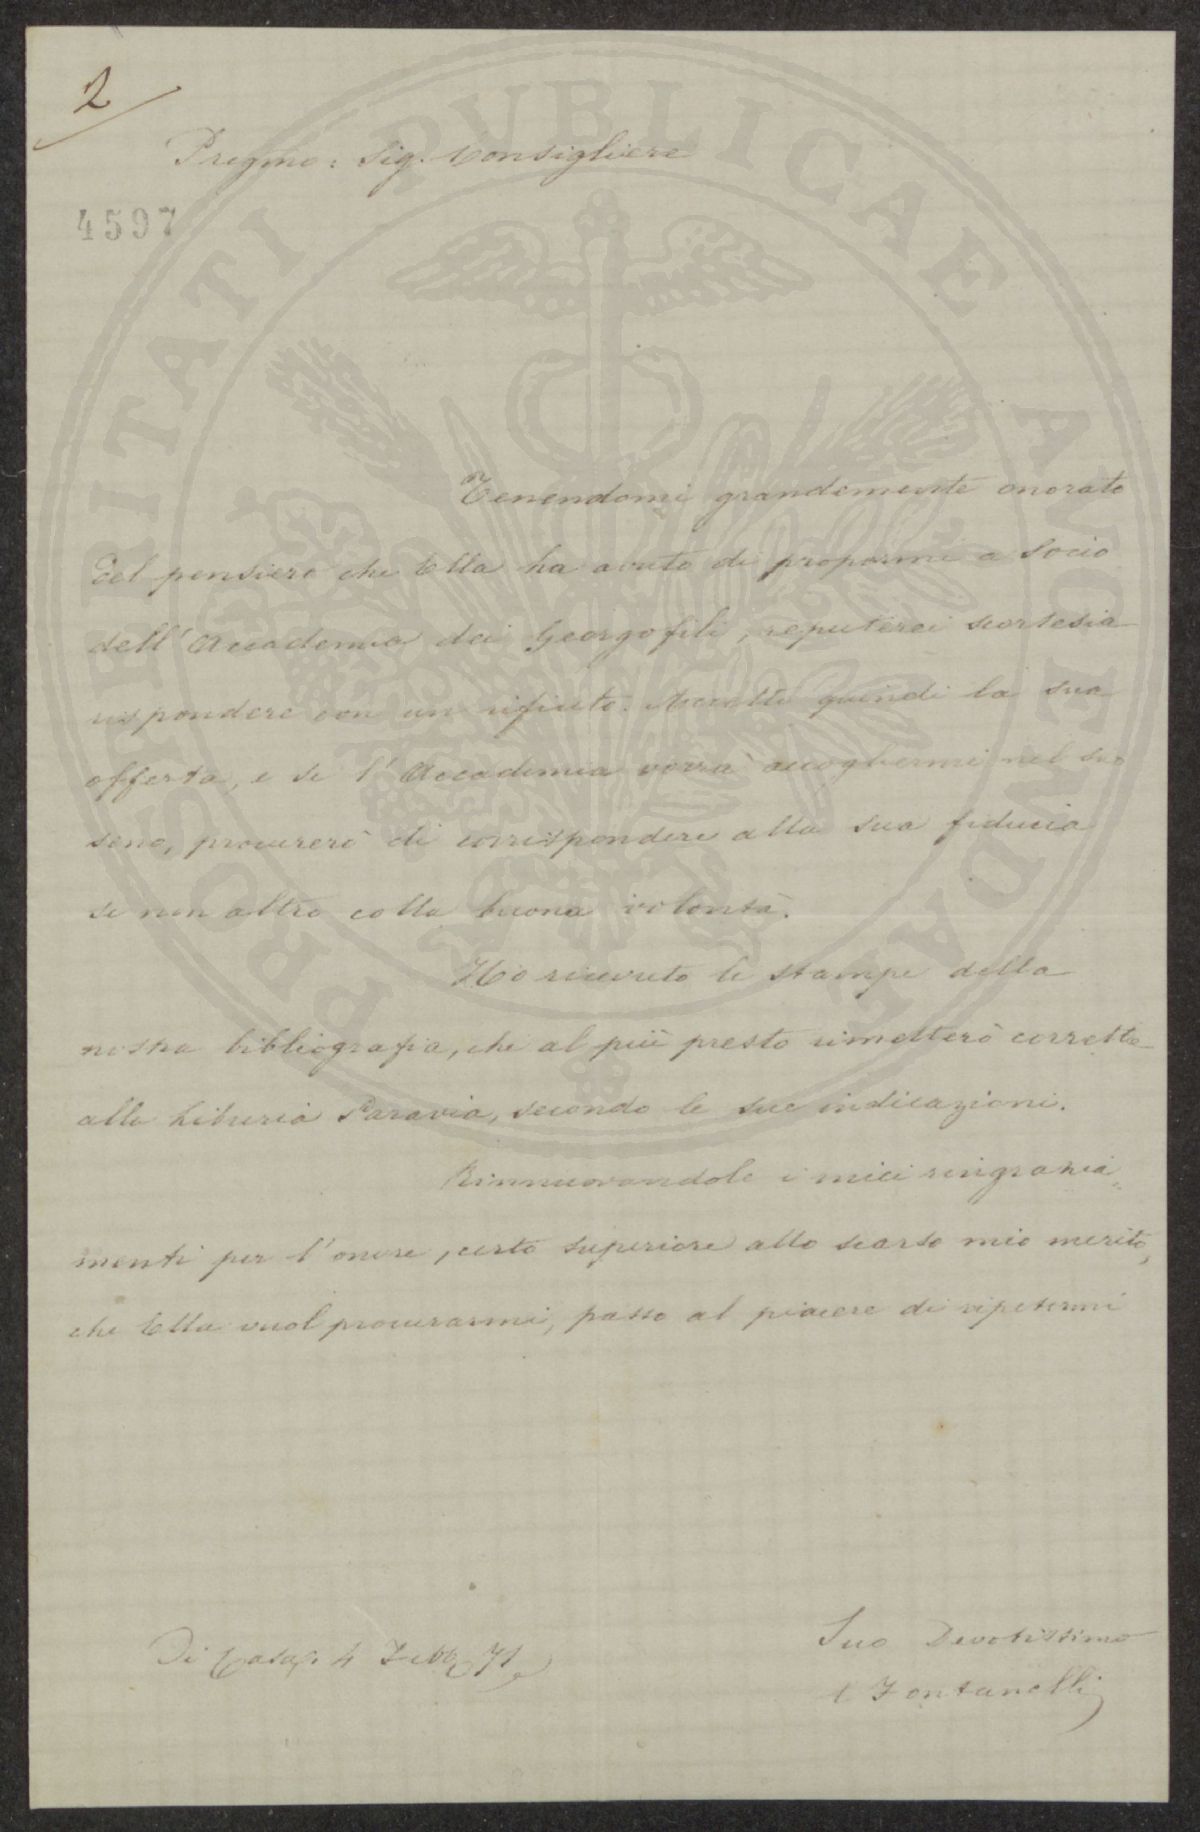 2
Pregmo: Sig. Consigliere
4597
PROSPERITATI PVBLICAE AVGENDAE
Tenendomi grandemente onorato
del pensiero che Ella ha avuto di propormi a Socio
dell'Accademia dei Georgofili, reputerei scortesia
rispondere con un rifiuto. Accetto quindi la sua
offerta, e se l'Accademia vorrà accogliermi nel suo
seno, procurerò di corrispondere alla sua fiducia
se non altro colla buona volontà.
Ho ricevuto le stampe della
nostra bibliografia, che al più presto rimetterò corrette
alla Libreria Paravia, secondo le sue indicazioni.
Rinnuovandole i miei ringrazia„
menti per l'onore, certo superiore allo scarso mio merito,
che Ella vuol procurarmi, passo al piacere di ripetermi
Suo Devotissimo
Di Casa, 4 Febb. 71
C Fontanelli